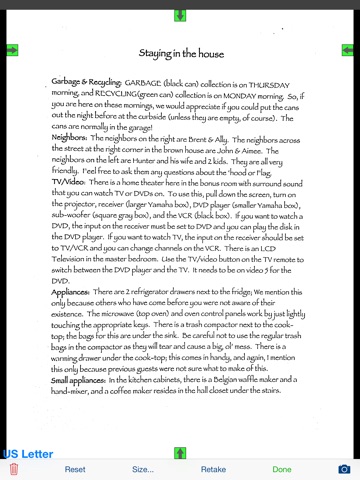 Staying in the house
Garbage & Recycling: GARBAGE (black can) collection is on THURSDAY
morning, and RECYCLING(green can) collection is on MONDAY morning. So, if
you are here on these mornings, we would appreciate if you could put the cans
out the night before at the curbside (unless they are empty, of course). The
cans are normally in the garage!
Neighbors: The neighbors on the right are Brent & Ally. The neighbors across
the street at the right corner in the brown house are John & Aimee. The
neighbors on the left are Hunter and his wife and 2 kids. They are all very
friendly. Feel free to ask them any questions about the 'hood or Flag.
TV/Video: There is a home theater here in the bonus room with surround sound
that you can watch TV or DVDs on. To use this, pull down the screen, turn on
the projector, receiver (larger Yamaha box), DVD player (smaller Yamaha box),
sub-woofer (square gray box), and the VCR (black box). If you want to watch a
DVD, the input on the receiver must be set to DVD and you can play the disk in
the DVD player. If you want to watch TV, the input on the receiver should be set
to TV/VCR and you can change channels on the VCR. There is an LCD
Television in the master bedroom. Use the TV/video button on the TV remote to
switch between the DVD player and the TV. It needs to be on video 5 for the
DVD.
Appliances: There are 2 refrigerator drawers next to the fridge; We mention this
only because others who have come before you were not aware of their
existence. The microwave (top oven) and oven control panels work by just lightly
touching the appropriate keys. There is a trash compactor next to the cook-
top; the bags for this are under the sink. Be careful not to use the regular trash
bags in the compactor as they will tear and cause a big, ol' mess. There is a
warming drawer under the cook-top; this comes in handy, and again, I mention
this only because previous guests were not sure what to make of this.
Small appliances: In the kitchen cabinets, there is a Belgian waffle maker and a
hand-mixer, and a coffee maker resides in the hall closet under the stairs.
US Letter
Reset Size... Retake Done